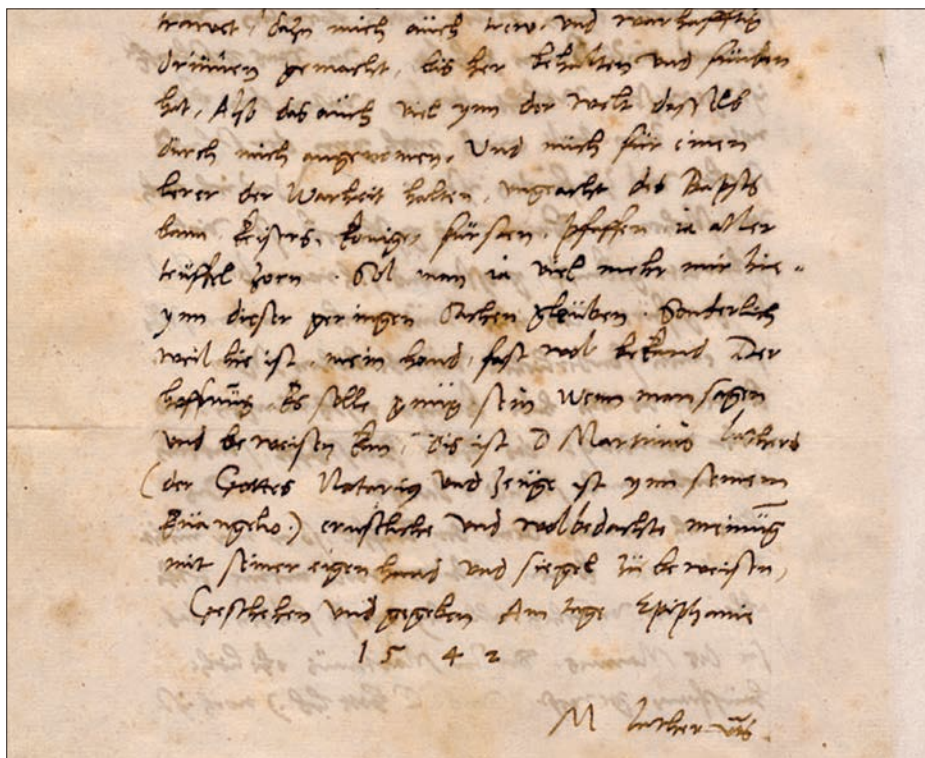 trawet, dazu mich auch trew und warhafftig
drinnen gemacht, bis her behalten und funden
hat, Also das auch viel ynn der welt dasselb
durch mich angenomen, Und mich fur einen
lerer der Warheit halten, ungeacht des Bapsts
bann, keisers, konige, fursten, pfaffen, ia aller
teuffel zorn. Sol man ia viel mehr mir hie-
ynn dieser geringen Sachen gleuben. Sonderlich
weil hie ist, mein hand, fast wol bekand Der
hoffnung, Es solle gnug sein Wenn man sagen
und beweisen kan, Dis ist D Martinus Luthers
(der Gottes Notarius und zeuge ist ynn seinem
Euangelio.) ernstliche und wolbedachte meinūg
mit seiner eigen hand und siegel zu beweisen,
Geschehen und gegeben Am tage Epiphanie
1542
M Luther